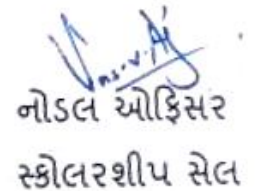 નોડલ ઓફિસર
સ્કોલરશીપ સેલ